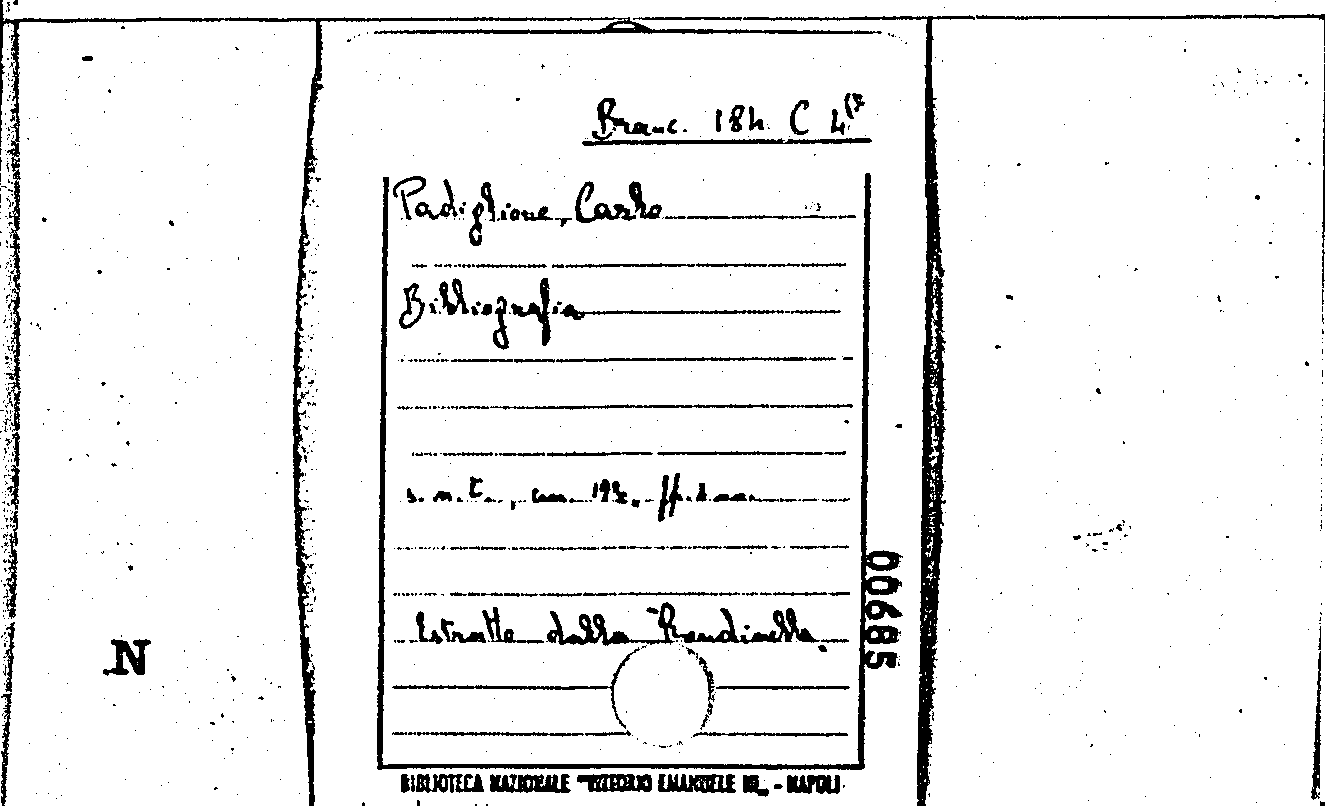 Branc. 184 C 4
Padiglione, Carlo
Bibliografia
s. n. t., cm. ff. 2 nn.
Estratto dalla Rondinella.
00685
N
BIBLIOTECA NAZIONALE "VITTORIO EMANUELE III" - NAPOLI